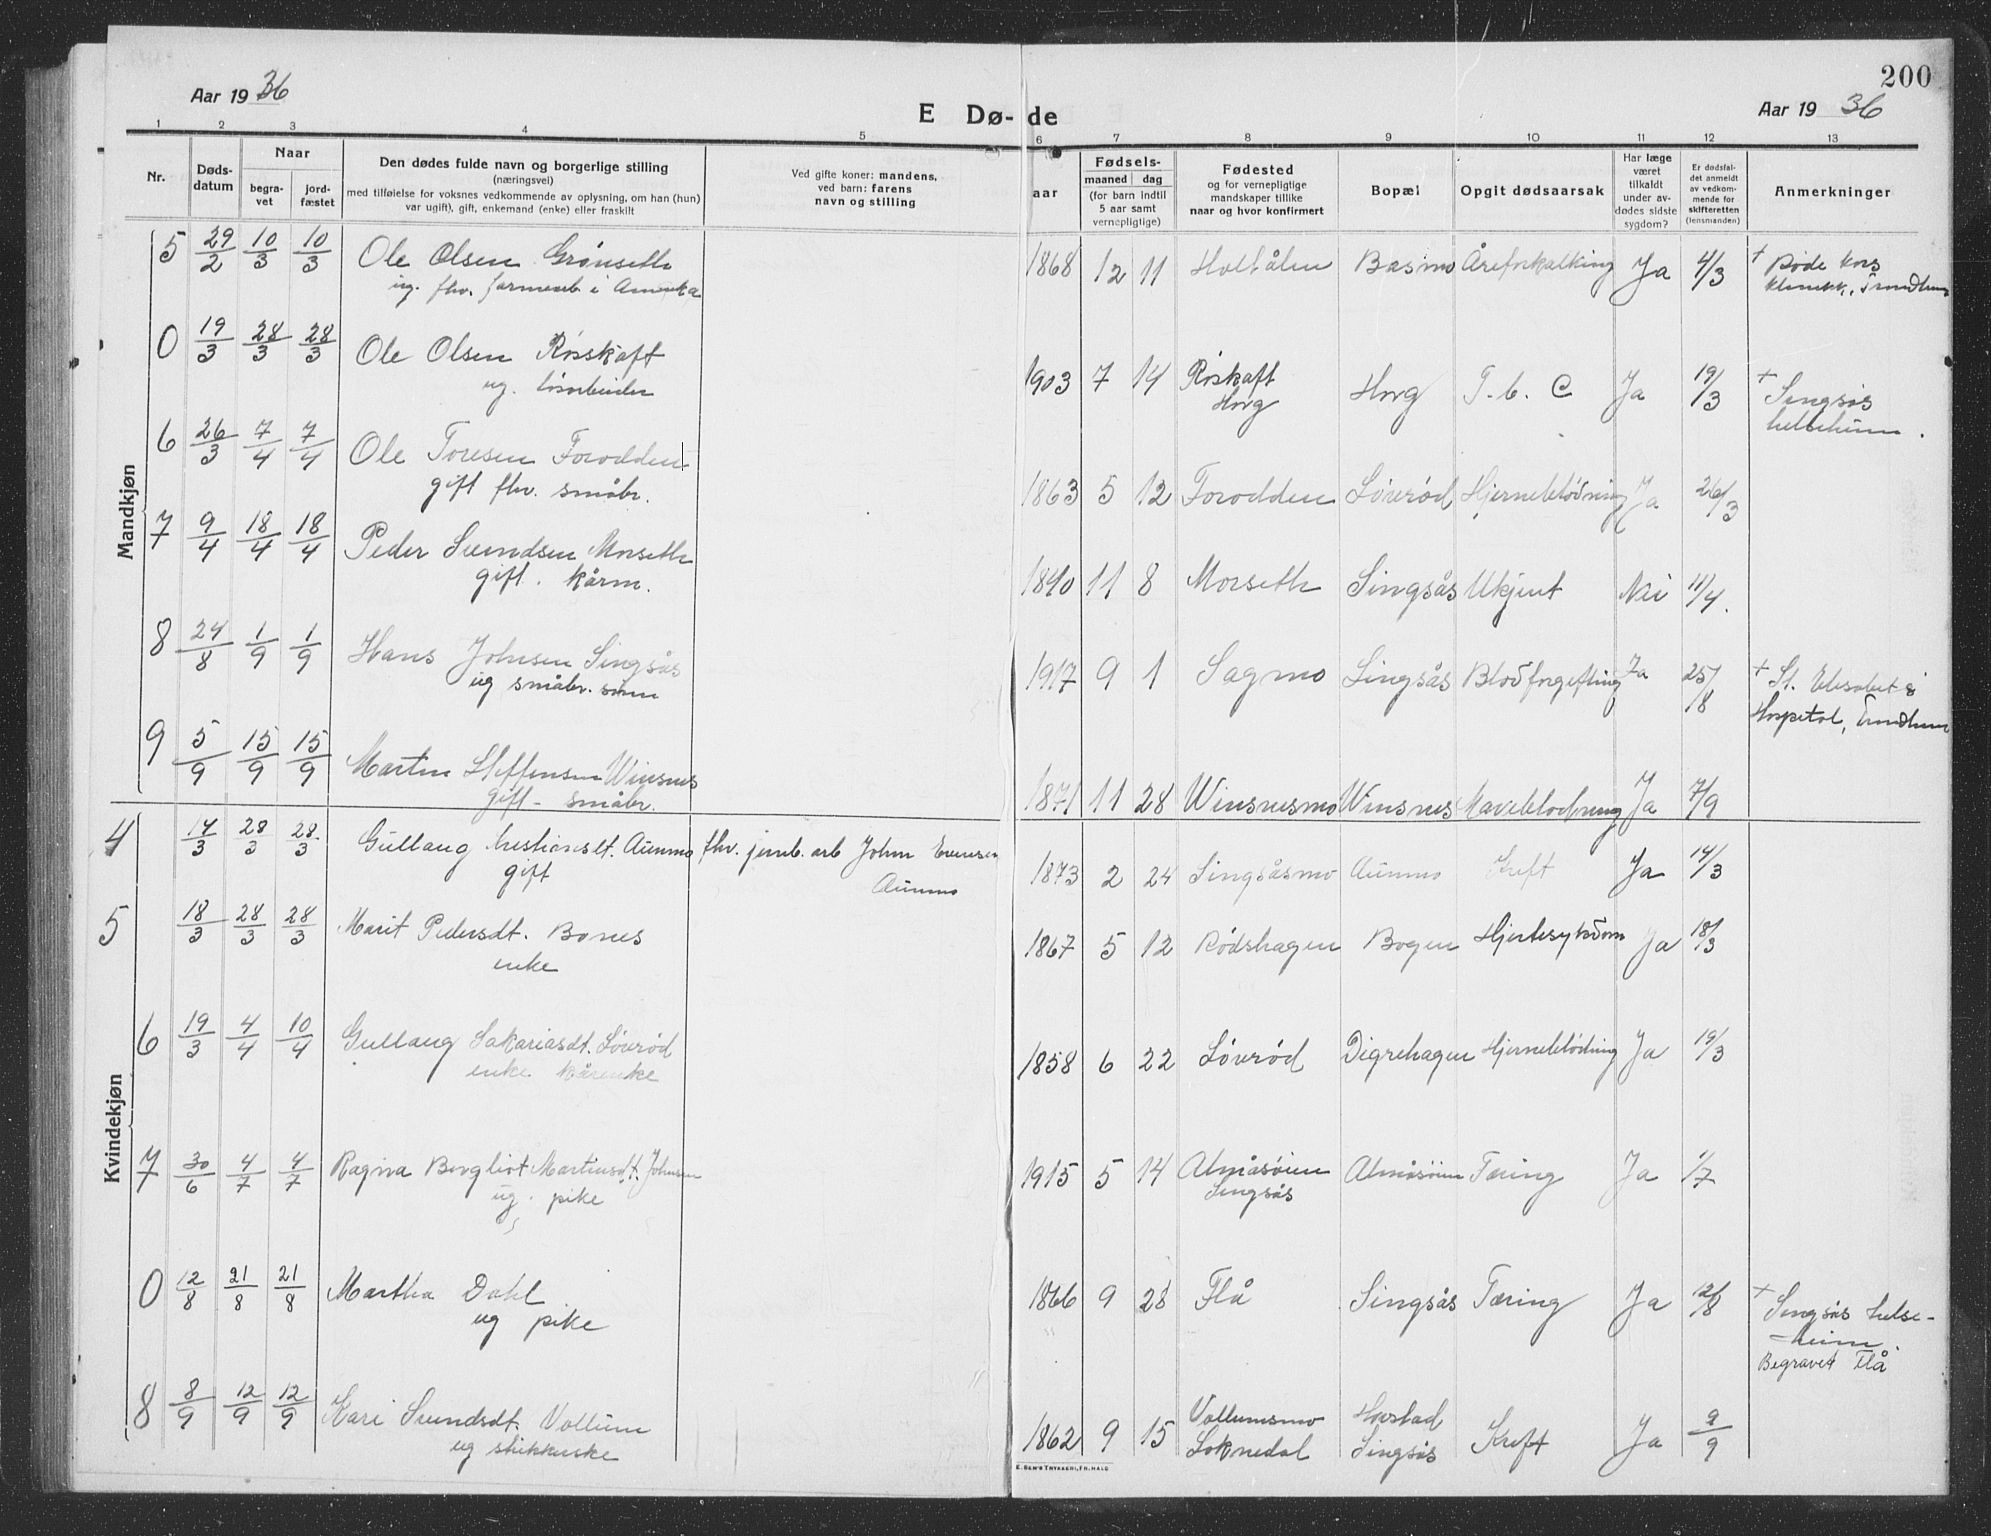 200
Aar 1936
E Dø-de
Aar 1936
1 2 3 4 5 6 7 8 9 10 11 12 13
Nr.
Døds-
datum
Naar
begra-
vet
jord-
fæstet
Den dødes fulde navn og borgerlige stilling
(næringsvei)
med tilføielse for voksnes vedkommende av oplysning, om han (hun)
var ugift), gift, enkemand (enke) eller fraskilt
Ved gifte koner: mandens,
ved barn: farens
navn og stilling
aar
Fødsels-
maaned dag
(for barn indtil
5 aar samt
vernepligtige)
Fødested
og for vernepligtige
mandskaper tillike
naar og hvor konfirmert
Bopæl
Opgit dødsaarsak
Har læge
været
tilkaldt
under av-
dødes sidste
sygdom?
Er dødsfal-
det anmeldt
av vedkom-
mende for
skifteretten
(lensmanden)
Anmerkninger
Mandkjøn
5 29/2 10/3 10/3 Ole Olsen Grønseth 1868 12 11 Holtålen Basmo Åreforkalking Ja 4/3 + Røde Kors
ug. fhv. farmerarb. i Amerika klinikk, Trondheim
0 19/3 28/3 28/3 Ole Olsen Røsskaft 1903 7 14 Røskaft Horg T.b.C Ja 19/3 + Singsås
ug. løsarbeider Horg helseheim.
6 26/3 7/4 7/4 Ole Toresen Forodden 1863 5 12 Forodden Løvrød Hjerneblødning Ja 26/3
gift fhv. småbr.
7 9/4 18/4 18/4 Peder Svendsen Morseth 1840 11 8 Morseth Singsås Ukjent Nei 11/4.
gift. kårm.
8 24/8 1/9 1/9 Hans Johnsen Singsås 1917 9 1 Sagmo Singsås Blodforgiftning Ja 25/8 + St. Elisabeths
ug småbr. sønn Hospital, Trondheim
9 5/9 15/9 15/9 Martin Steffensen Winsnes 1871 11 28 Winsnesmo Winsnes Maveblødning Ja 7/9
gift - småbr.
Kvindekjøn
4 14/3 28/3 28/3 Gullaug Kristiansdt. Aunmo fhv. jernb. arb John Evensen 1873 2 24 Singsåsmo Aunmo Kreft Ja 14/3
gift Aunmo
5 18/3 28/3 28/3 Marit Pedersdt. Bones 1867 5 12 Rødshagen Bogen Hjertesykdom Ja 18/3
enke
6 19/3 4/4 10/4 Gullaug Sakariasdt. Løvrød 1858 6 22 Løvrød Digrehagen Hjerneblødning Ja 19/3
enke kårenke
7 30/6 4/7 4/7 Ragna Bergliot Martinsdt. Johnsen 1915 5 14 Almåsøien Almåsøien Tæring Ja 1/7
ug. pike Singsås
0 12/8 21/8 21/8 Martha Dahl 1866 9 28 Flå Singsås Tæring Ja 12/8 + Singsås helse-
ug pike heim.
Begravet Flå
8 8/9 12/9 12/9 Kari Svendsdt. Vollum 1862 9 15 Vollumsmo Hovstad Kreft Ja 9/9
ug Soknedal Singsås
E. Sem's Trykkeri, Fr.hald